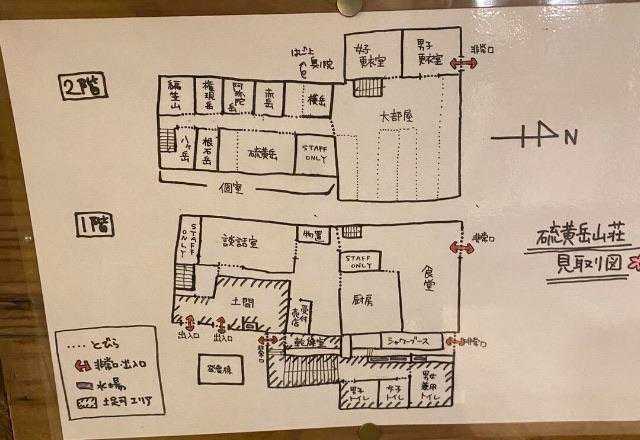 2階
はしご上
奥の院
女子
更衣室
男子
更衣室
非常口
編笠山
権現岳
阿弥陀岳
赤岳
横岳
大部屋
八ヶ岳
根石岳
硫黄岳
STAFF
ONLY
個室
N
硫黄岳山荘
見取り図
1階
STAFF
ONLY
談話室
物置
STAFF
ONLY
食堂
非常口
土間
売店
受付
厨房
出入口
出入口
非常口
乾燥室
シャワーブース
非常口
発電機
男子
トイレ
女子
トイレ
男女
兼用
トイレ
とびら
非常口・出入口
水場
土足可エリア